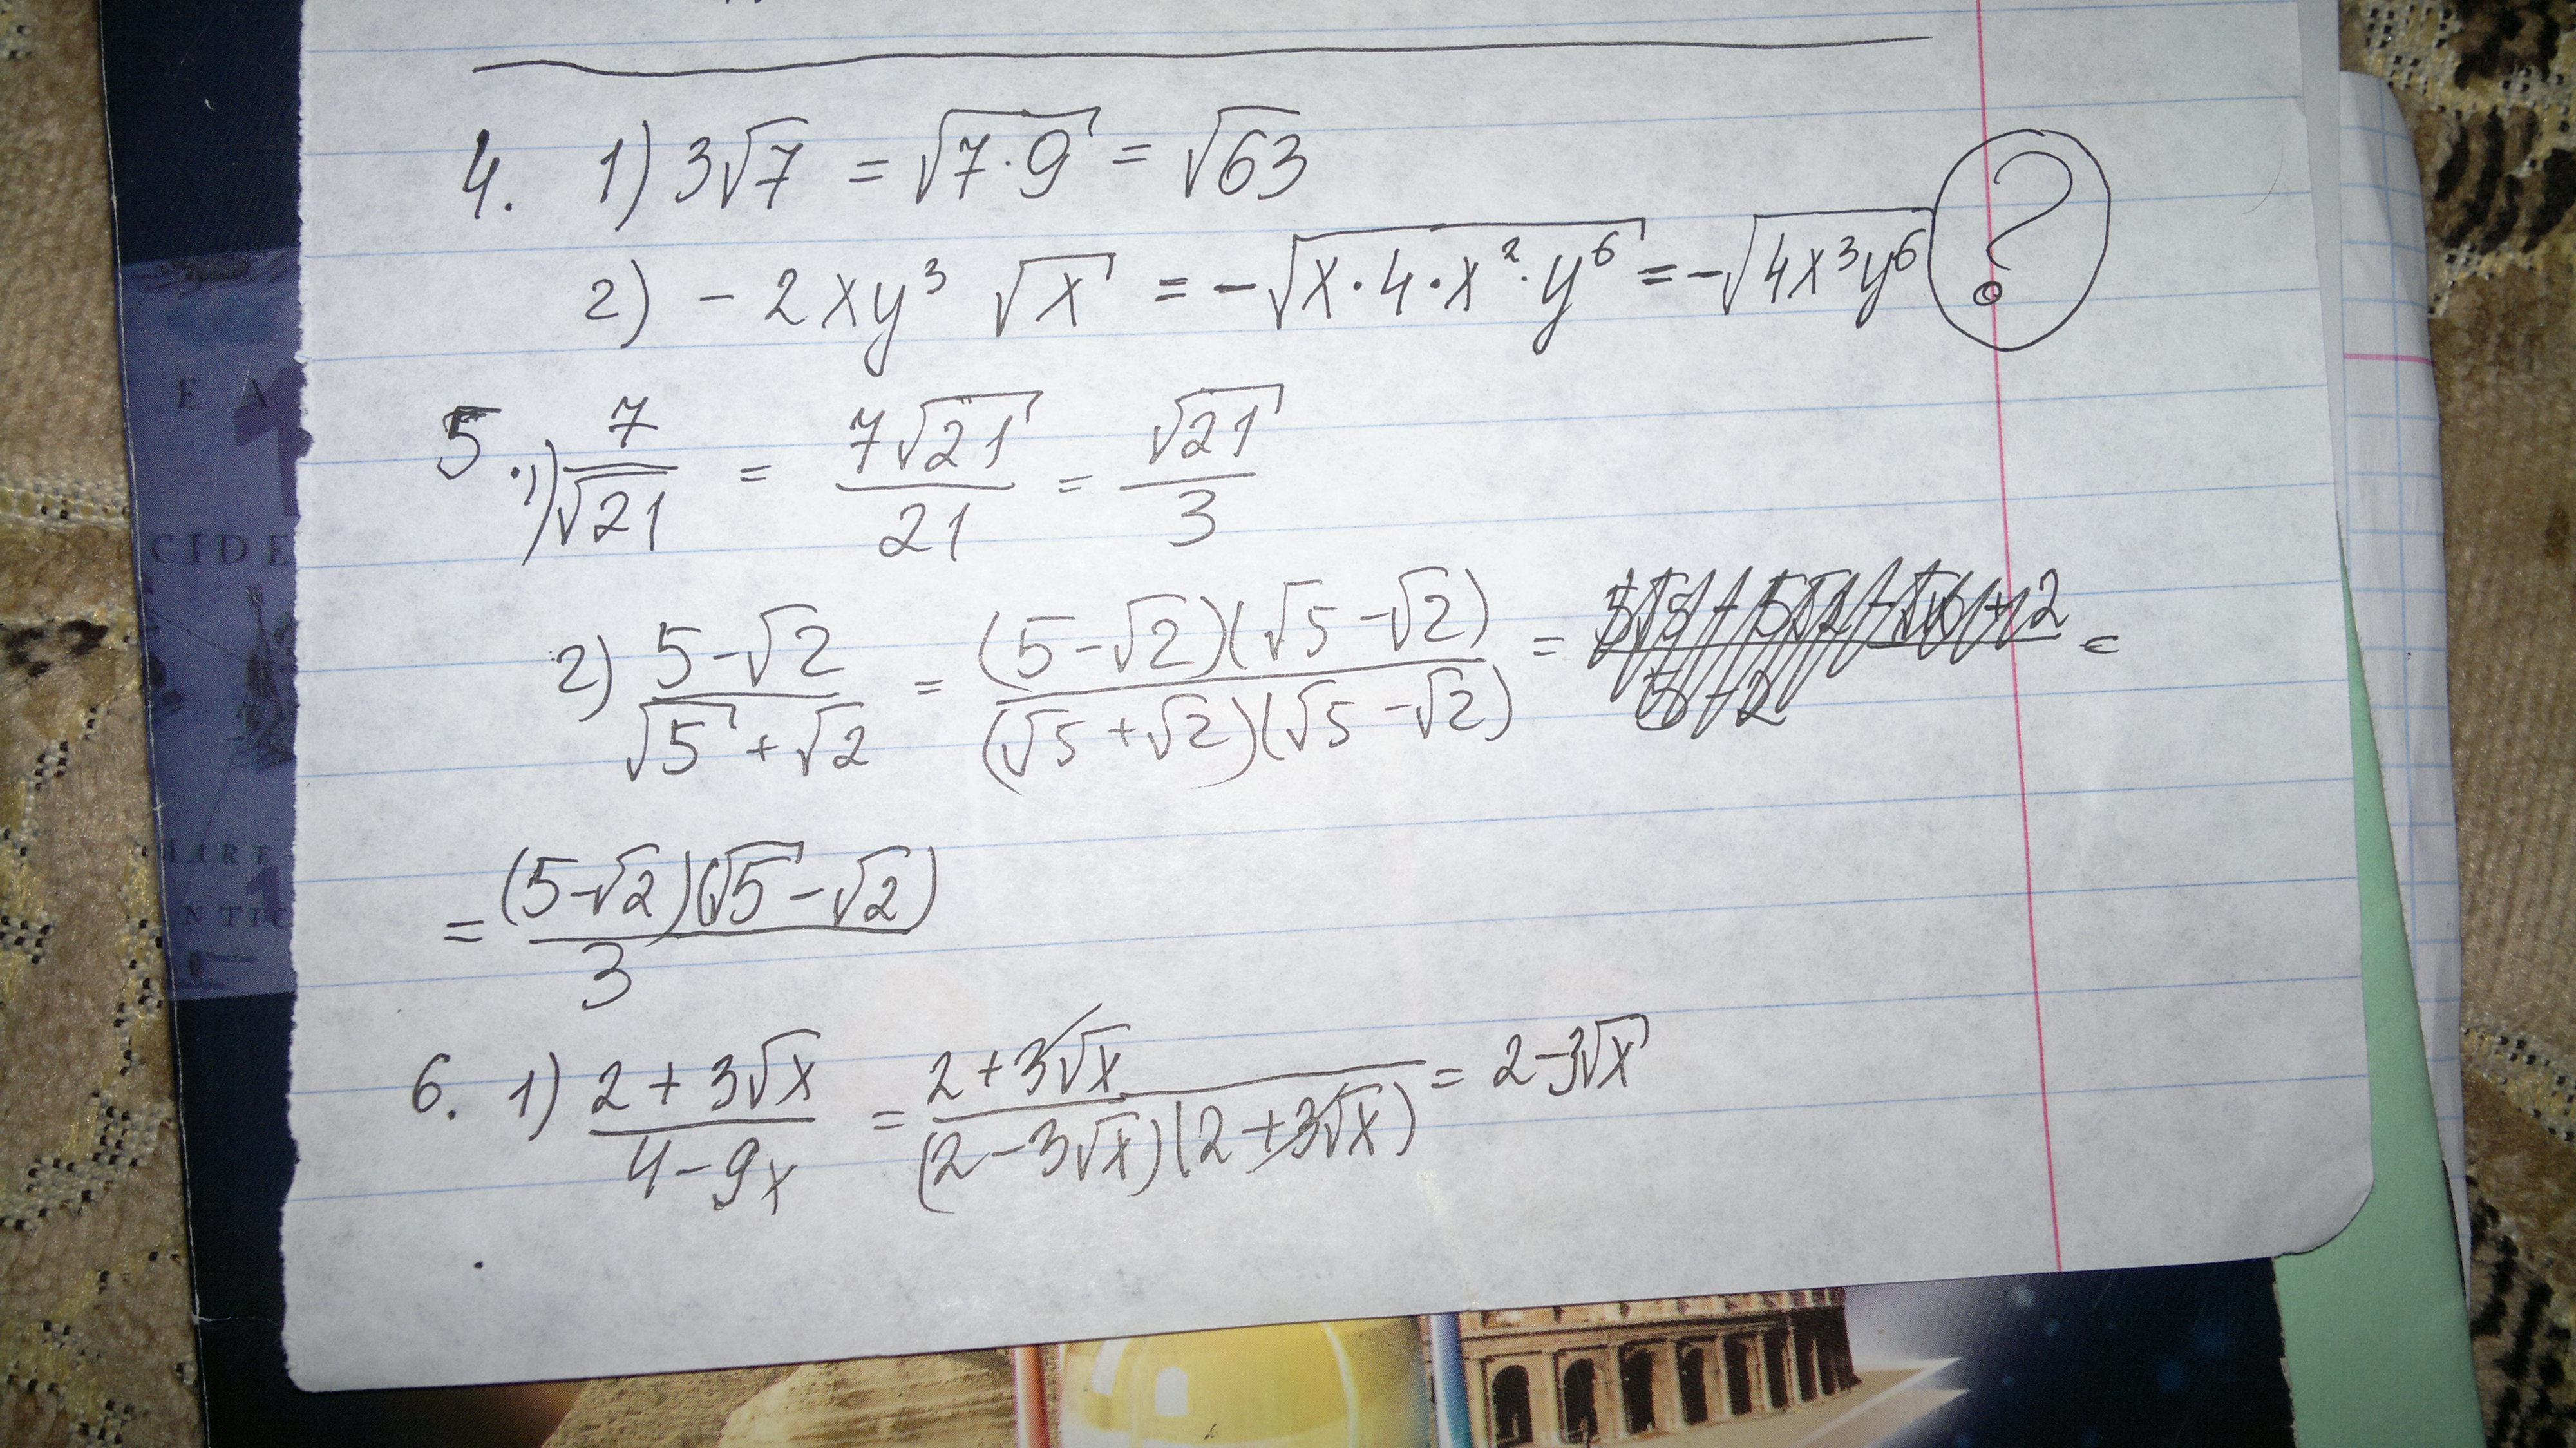 4. 1) 3√7 = √7·9 = √63
2) - 2xy³ √x = -√x·4·x²·y⁶ = -√4x³y⁶ ?
5. 1) 7/√21 = 7√21/21 = √21/3
2) 5-√2/√5+√2 = (5-√2)(√5-√2)/(√5+√2)(√5-√2) = =
= (5-√2)(√5-√2)/3
6. 1) 2+3√x/4-9x = 2+3√x/(2-3√x)(2+3√x) = 2-3√x
E A
CIDE
MARE
NTIC